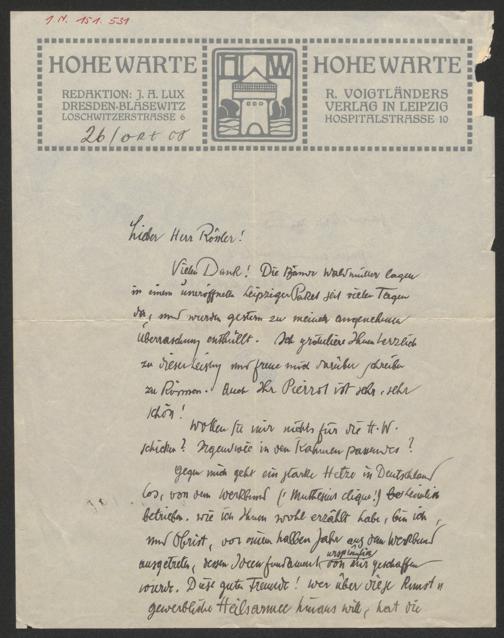 I.N. 151.531
HOHE WARTE
REDAKTION: J. A. LUX
DRESDEN-BLASEWITZ
LOSCHWITZERSTRASSE 6
H W
HOHE WARTE
R. VOIGTLÄNDERS
VERLAG IN LEIPZIG
HOSPITALSTRASSE 10
26/okt 08
Lieber Herr Rössler!
Vielen Dank! Die Bände Waldmüller lagen
in einem uneröffneten Leipziger Paket seit vielen Tagen
da, und wurden gestern zu meiner angenehmen
Überraschung enthüllt. Ich gratuliere Ihnen herzlich
zu dieser Leistung und freue mich darüber schreiben
zu können. Auch Ihr Pierrot ist sehr, sehr
schön!
Wollen Sie mir nichts für die H.W.
schicken? Irgendwie in den Rahmen passendes?
Gegen mich geht ein starke Hetze in Deutschland
los, von dem Werkbund (Muthesius clique!)
betrieben. Wie ich Ihnen wohl erzählt habe, bin ich,
und Obrist, vor einem halben Jahr aus dem Werkbund
ausgetreten, dessen Ideenfundament ursprünglich von mir geschaffen
wurde. Diese guten Freunde! Wer über diese Kunst-
gewerbliche Heilsarmee hinaus will, hat die